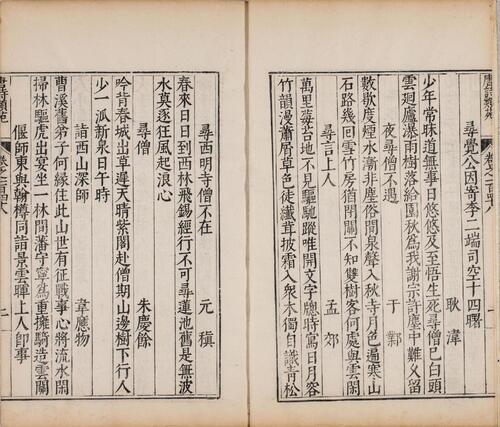 尋覺公因寄李二端司空十四曙
耿湋
少年常昧道無事日悠悠及至悟生死尋僧已白頭
雲迴廬瀑雨樹落給園秋為我謝宗許塵中難久留
夜尋僧不遇
于鄴
數歇度煙水漸非塵俗間泉聲入秋寺月色遍寒山
石路幾回雪竹房猶閉關不知雙樹客何處與雲閒
尋言上人
孟郊
萬里莓苔地不見驅馳蹤唯開文字牕時寫日月容
竹韻漫蕭屑草色徒纖茸披霜入衆木獨自識青松
尋西明寺僧不在
元稹
春來日日到西林飛錫經行不可尋蓮池舊是無波
水莫逐狂風起浪心
尋僧
朱慶餘
吟背春城出草遲天晴紫閣赴僧期山邊樹下行人
少一派新泉日午時
詣西山深師
韋應物
曹溪舊弟子何緣住此山世有征戰事心將流水閒
掃林驅虎出宴坐一林間藩守寧為重擁騎造雲關
偃師東與翰樽同詣景雲暉上人即事